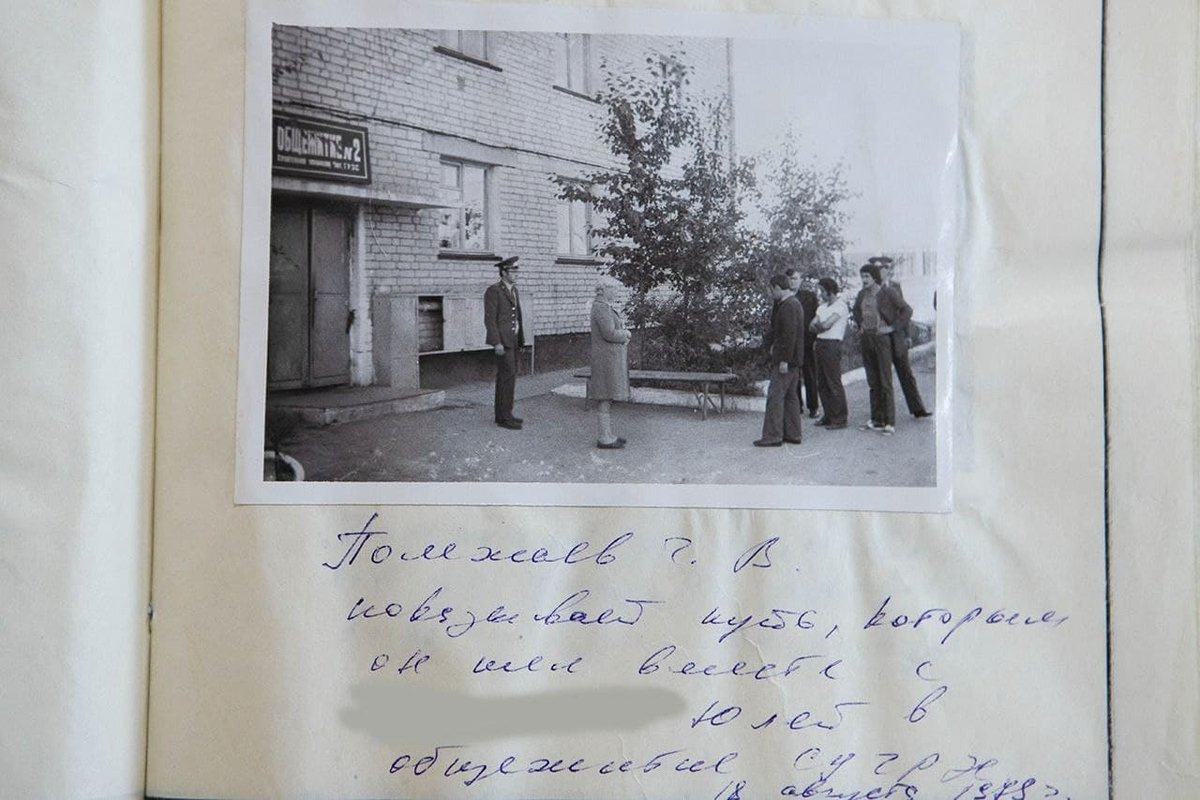 ОБЩЕЖИТИЕ №2
Полежаев Г. В.
показывает путь, которым
он шел вместе с
Юлей в
общежитие
18 августа 1979 г.